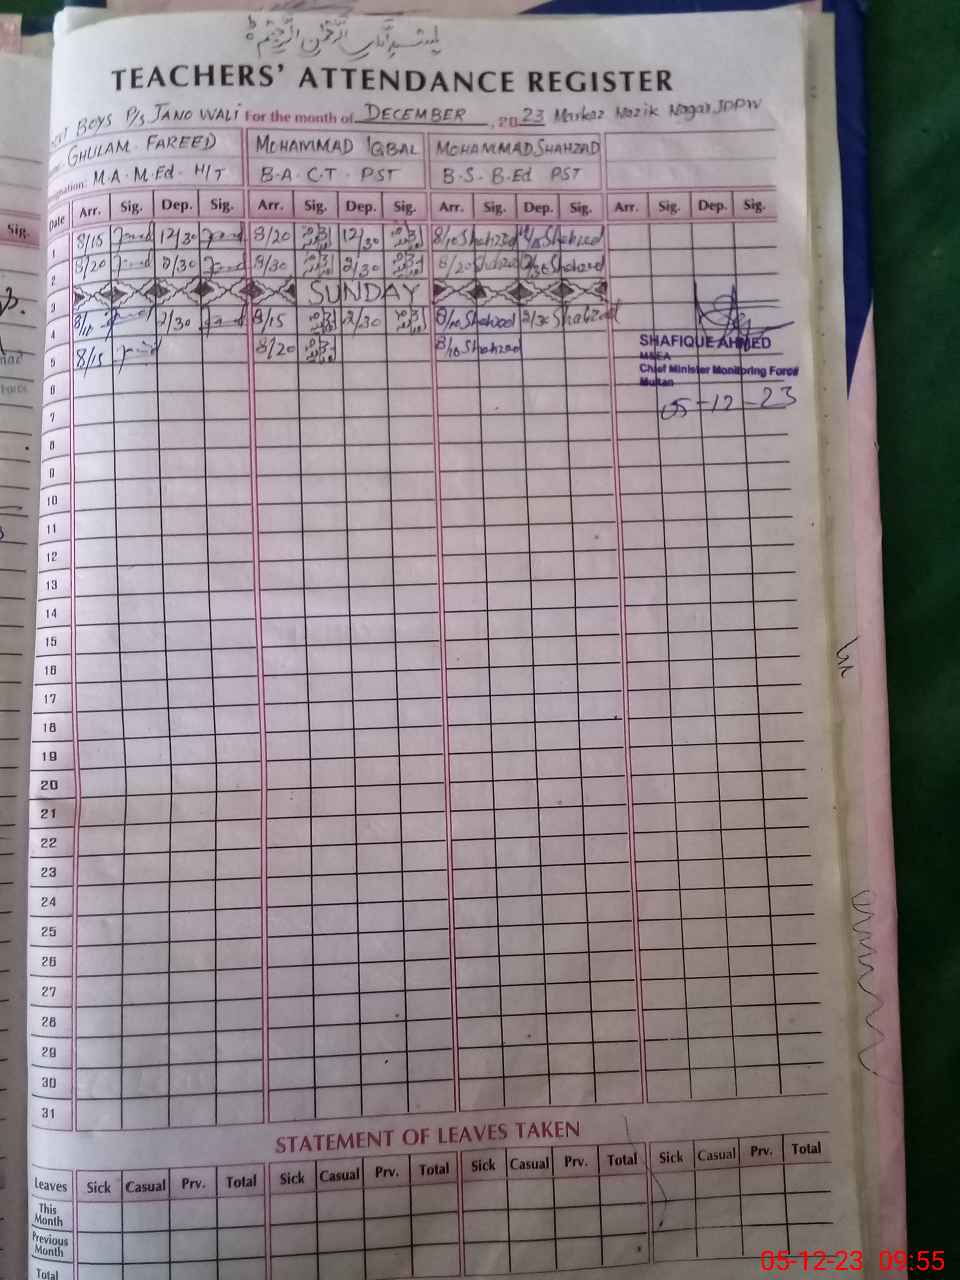 TEACHERS' ATTENDANCE REGISTER
BOYS P/S JANO WALI For the month of DECEMBER, 2023 Markaz Nazik Nagar JDPW
GHULAM FAREED MOHAMMAD IQBAL MOHAMMAD SHAHZAD
M.A. M.Ed. H/T B.A. C.T. PST B.S. B.Ed PST
Date Arr. Sig. Dep. Sig. Arr. Sig. Dep. Sig. Arr. Sig. Dep. Sig. Arr. Sig. Dep. Sig.
1 8/15 12/30 8/20 12/30 8/10 Shahzad Shahzad
2 8/20 2/30 8/30 2/30 8/20 Shahzad 2/30 Shahzad
3 SUNDAY
4 2/30 8/15 2/30 8/10 Shahzad 2/30 Shahzad
5 8/15 8/20 8/10 Shahzad
SHAFIQUE AHMED
MEA
Chief Minister Monitoring Force
Multan
05-12-23
6
7
8
9
10
11
12
13
14
15
16
17
18
19
20
21
22
23
24
25
26
27
28
29
30
31
STATEMENT OF LEAVES TAKEN
Leaves Sick Casual Prv. Total Sick Casual Prv. Total Sick Casual Prv. Total Sick Casual Prv. Total
This Month
Previous Month
Total
Sig.
05-12-23 09:55